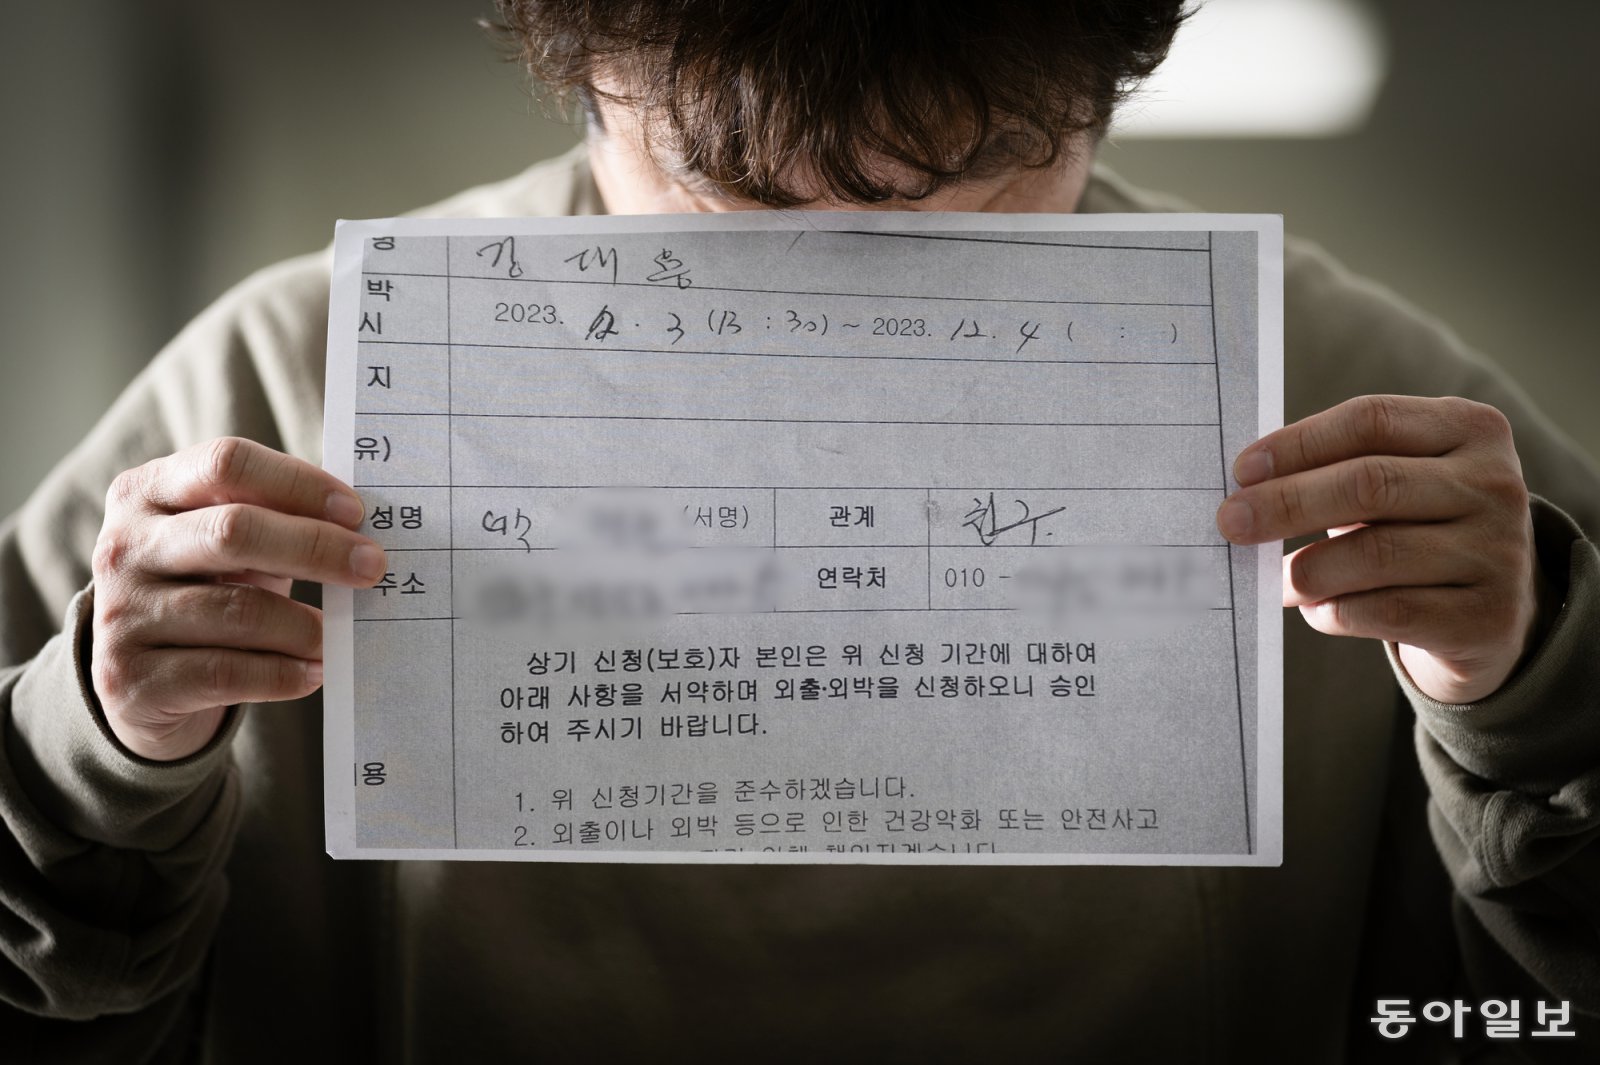 명 김 대 홍
박
시 2023. 12. 3 (13 : 30) ~ 2023. 12. 4 ( : )
지
유)
성명 박 (서명) 관계 친구.
주소 연락처 010 -
상기 신청(보호)자 본인은 위 신청 기간에 대하여
아래 사항을 서약하며 외출·외박을 신청하오니 승인
하여 주시기 바랍니다.
용
1. 위 신청기간을 준수하겠습니다.
2. 외출이나 외박 등으로 인한 건강악화 또는 안전사고
동아일보